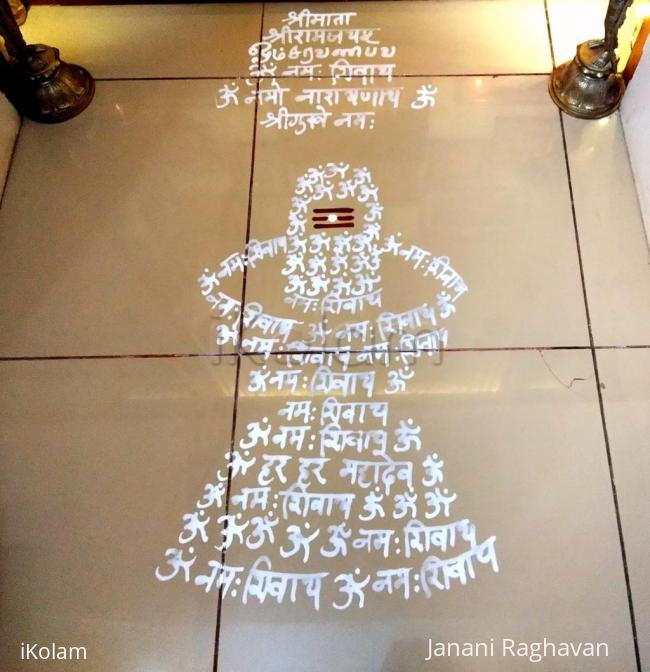 श्रीमाता
श्रीरामजयम्
ஓம் சரவணபவ
ॐ नमः शिवाय
ॐ नमो नारायणाय ॐ
श्रीगुरुवे नमः
ॐ ॐ ॐ ॐ
ॐ ॐ ॐ ॐ
ॐ ॐ
ॐ ॐ
ॐ नमः शिवाय ॐ ॐ ॐ ॐ ॐ नमः शिवाय
ॐ ॐ ॐ ॐ
ॐ ॐ ॐ ॐ
नमः शिवाय
नमः शिवाय ॐ नमः शिवाय ॐ
ॐ नमः शिवाय नमः शिवाय
ॐ नमः शिवाय ॐ
नमः शिवाय
ॐ नमः शिवाय ॐ
ॐ हर हर महादेव ॐ
ॐ नमः शिवाय ॐ ॐ ॐ
ॐ ॐ ॐ ॐ ॐ नमः शिवाय
ॐ नमः शिवाय ॐ नमः शिवाय
iKolam
Janani Raghavan